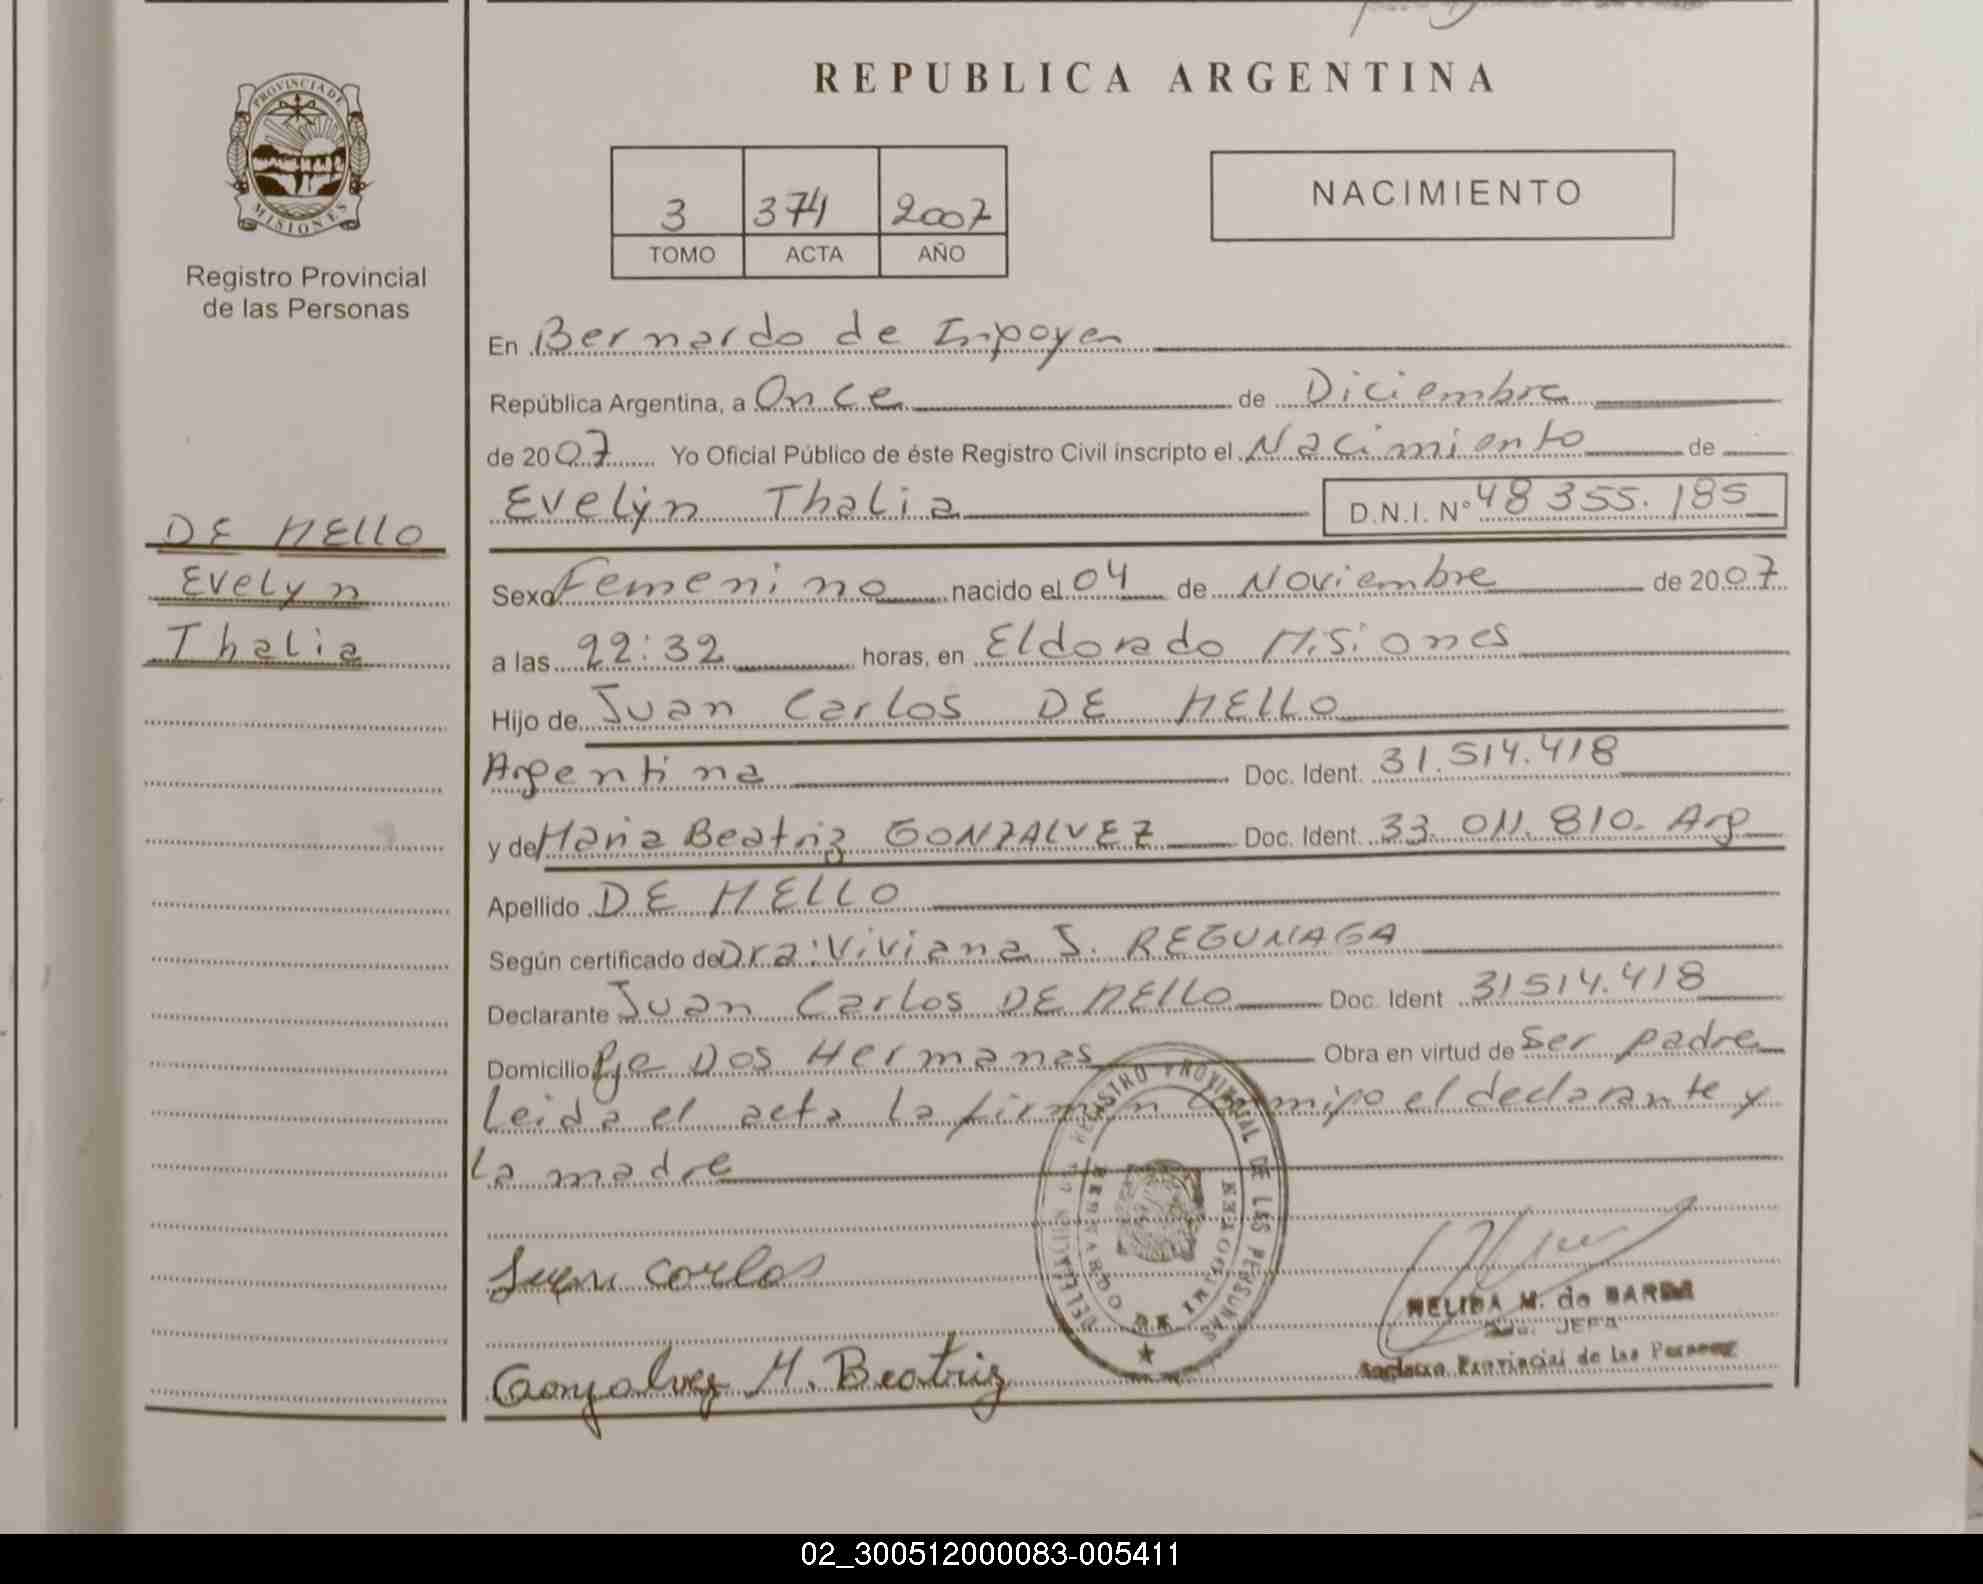 REPUBLICA ARGENTINA
PROVINCIA DE
MISIONES
Registro Provincial
de las Personas
3 374 2007
TOMO ACTA AÑO
NACIMIENTO
En Bernardo de Irigoyen
República Argentina, a Once de Diciembre
de 2007 Yo Oficial Público de éste Registro Civil inscripto el Nacimiento de
Evelyn Thalia D.N.I. Nº 48 355.185
DE MELLO
Evelyn
Thalia
Sexo Femenino nacido el 04 de Noviembre de 2007
a las 22:32 horas, en Eldorado Misiones
Hijo de Juan Carlos DE MELLO
Argentina Doc. Ident. 31.514.418
y de Maria Beatriz GONZALVEZ Doc. Ident. 33.011.810. Arg
Apellido DE MELLO
Según certificado de Dra: Viviana S. REGUNAGA
Declarante Juan Carlos DE MELLO Doc. Ident 31514.418
Domicilio Pje Dos Hermanas Obra en virtud de Ser padre
Leida el acta la firman conmigo el declarante y
la madre
REGISTRO PROVINCIAL DE LAS PERSONAS
Juan Carlos
NELIDA M. de
JEFA
Provincial de las
Gonzalvez M. Beatriz
02_300512000083-005411